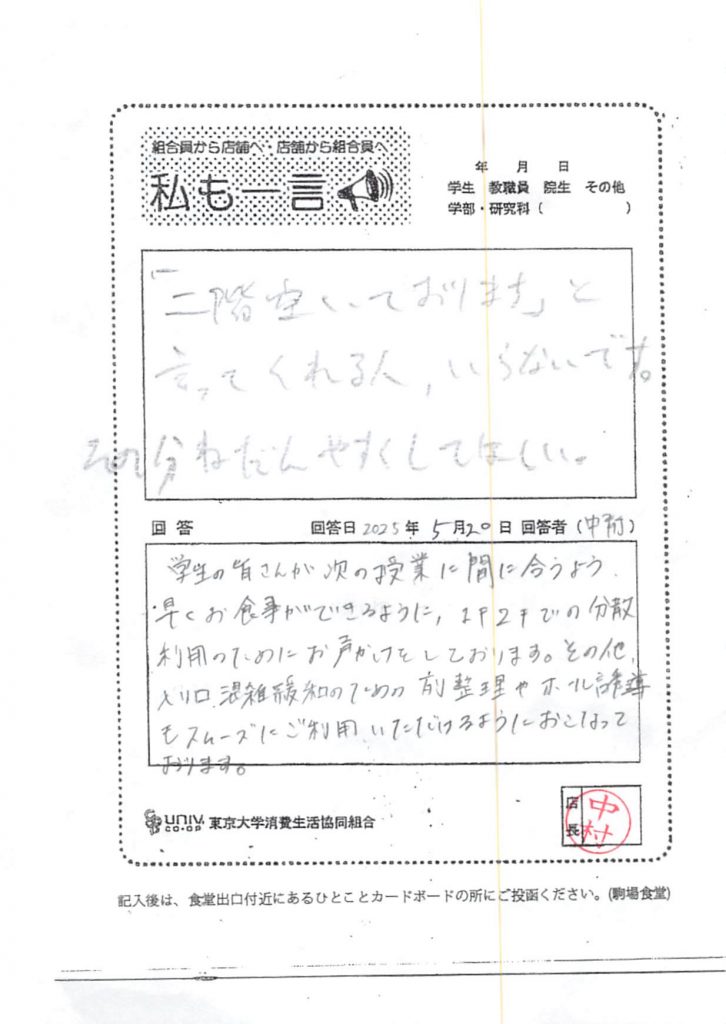 組合員から店舗へ・店舗から組合員へ
私も一言
年 月 日
学生 教職員 院生 その他
学部・研究科( )
「二階空いております」と
言ってくれる人, いらないです。
その分ねだんやすくしてほしい。
回答 回答日 2025年 5月20日 回答者(中村)
学生の皆さんが次の授業に間に合うよう、
早くお食事ができるように, 1F2Fでの分散
利用のためにお声かけをしております。その他,
入り口混雑緩和のための列整理やホール誘導
もスムーズにご利用いただけるようにおこなって
おります。
店長
中村
UNIV. CO-OP 東京大学消費生活協同組合
記入後は、食堂出口付近にあるひとことカードボードの所にご投函ください。(駒場食堂)